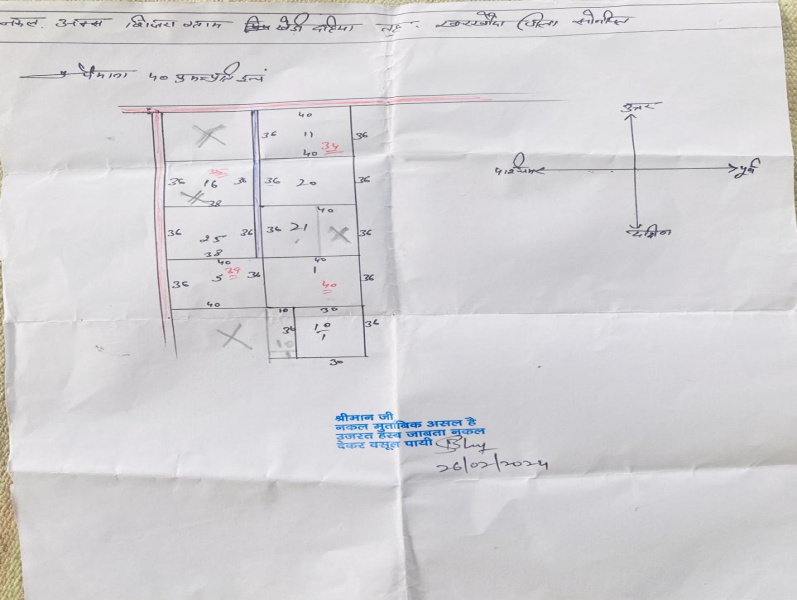 नकल अक्स शिजरा ग्राम खेडी दहिया तह. खरखौदा जिला सोनीपत
पैमाना 40 करम प्रति इन्च
उत्तर
पश्चिम
पूर्व
दक्षिण
40
36 11 36
40 34
36 16 36 36 20 36
38
40
36 25 36 36 21 36
38 40
36 5 29 36 1 40 36
40 10 30
36 10 36
10 1
30
श्रीमान जी
नकल मुताबिक असल है
उजरत हस्ब जाबता नकल
देकर वसूल पायी
26/02/2024